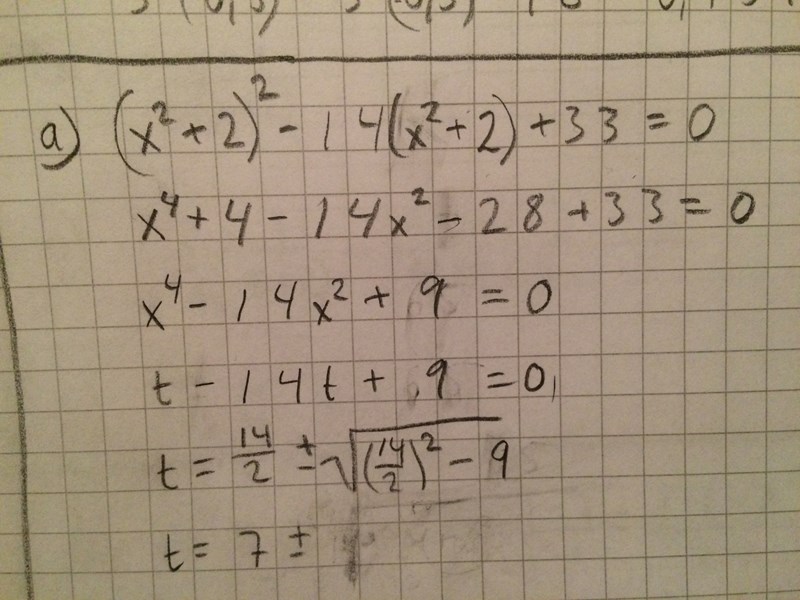 a) (x² + 2)² - 14(x² + 2) + 33 = 0
x⁴ + 4 - 14x² - 28 + 33 = 0
x⁴ - 14x² + 9 = 0
t - 14t + 9 = 0
t = 14/2 ± √((14/2)² - 9)
t = 7 ±